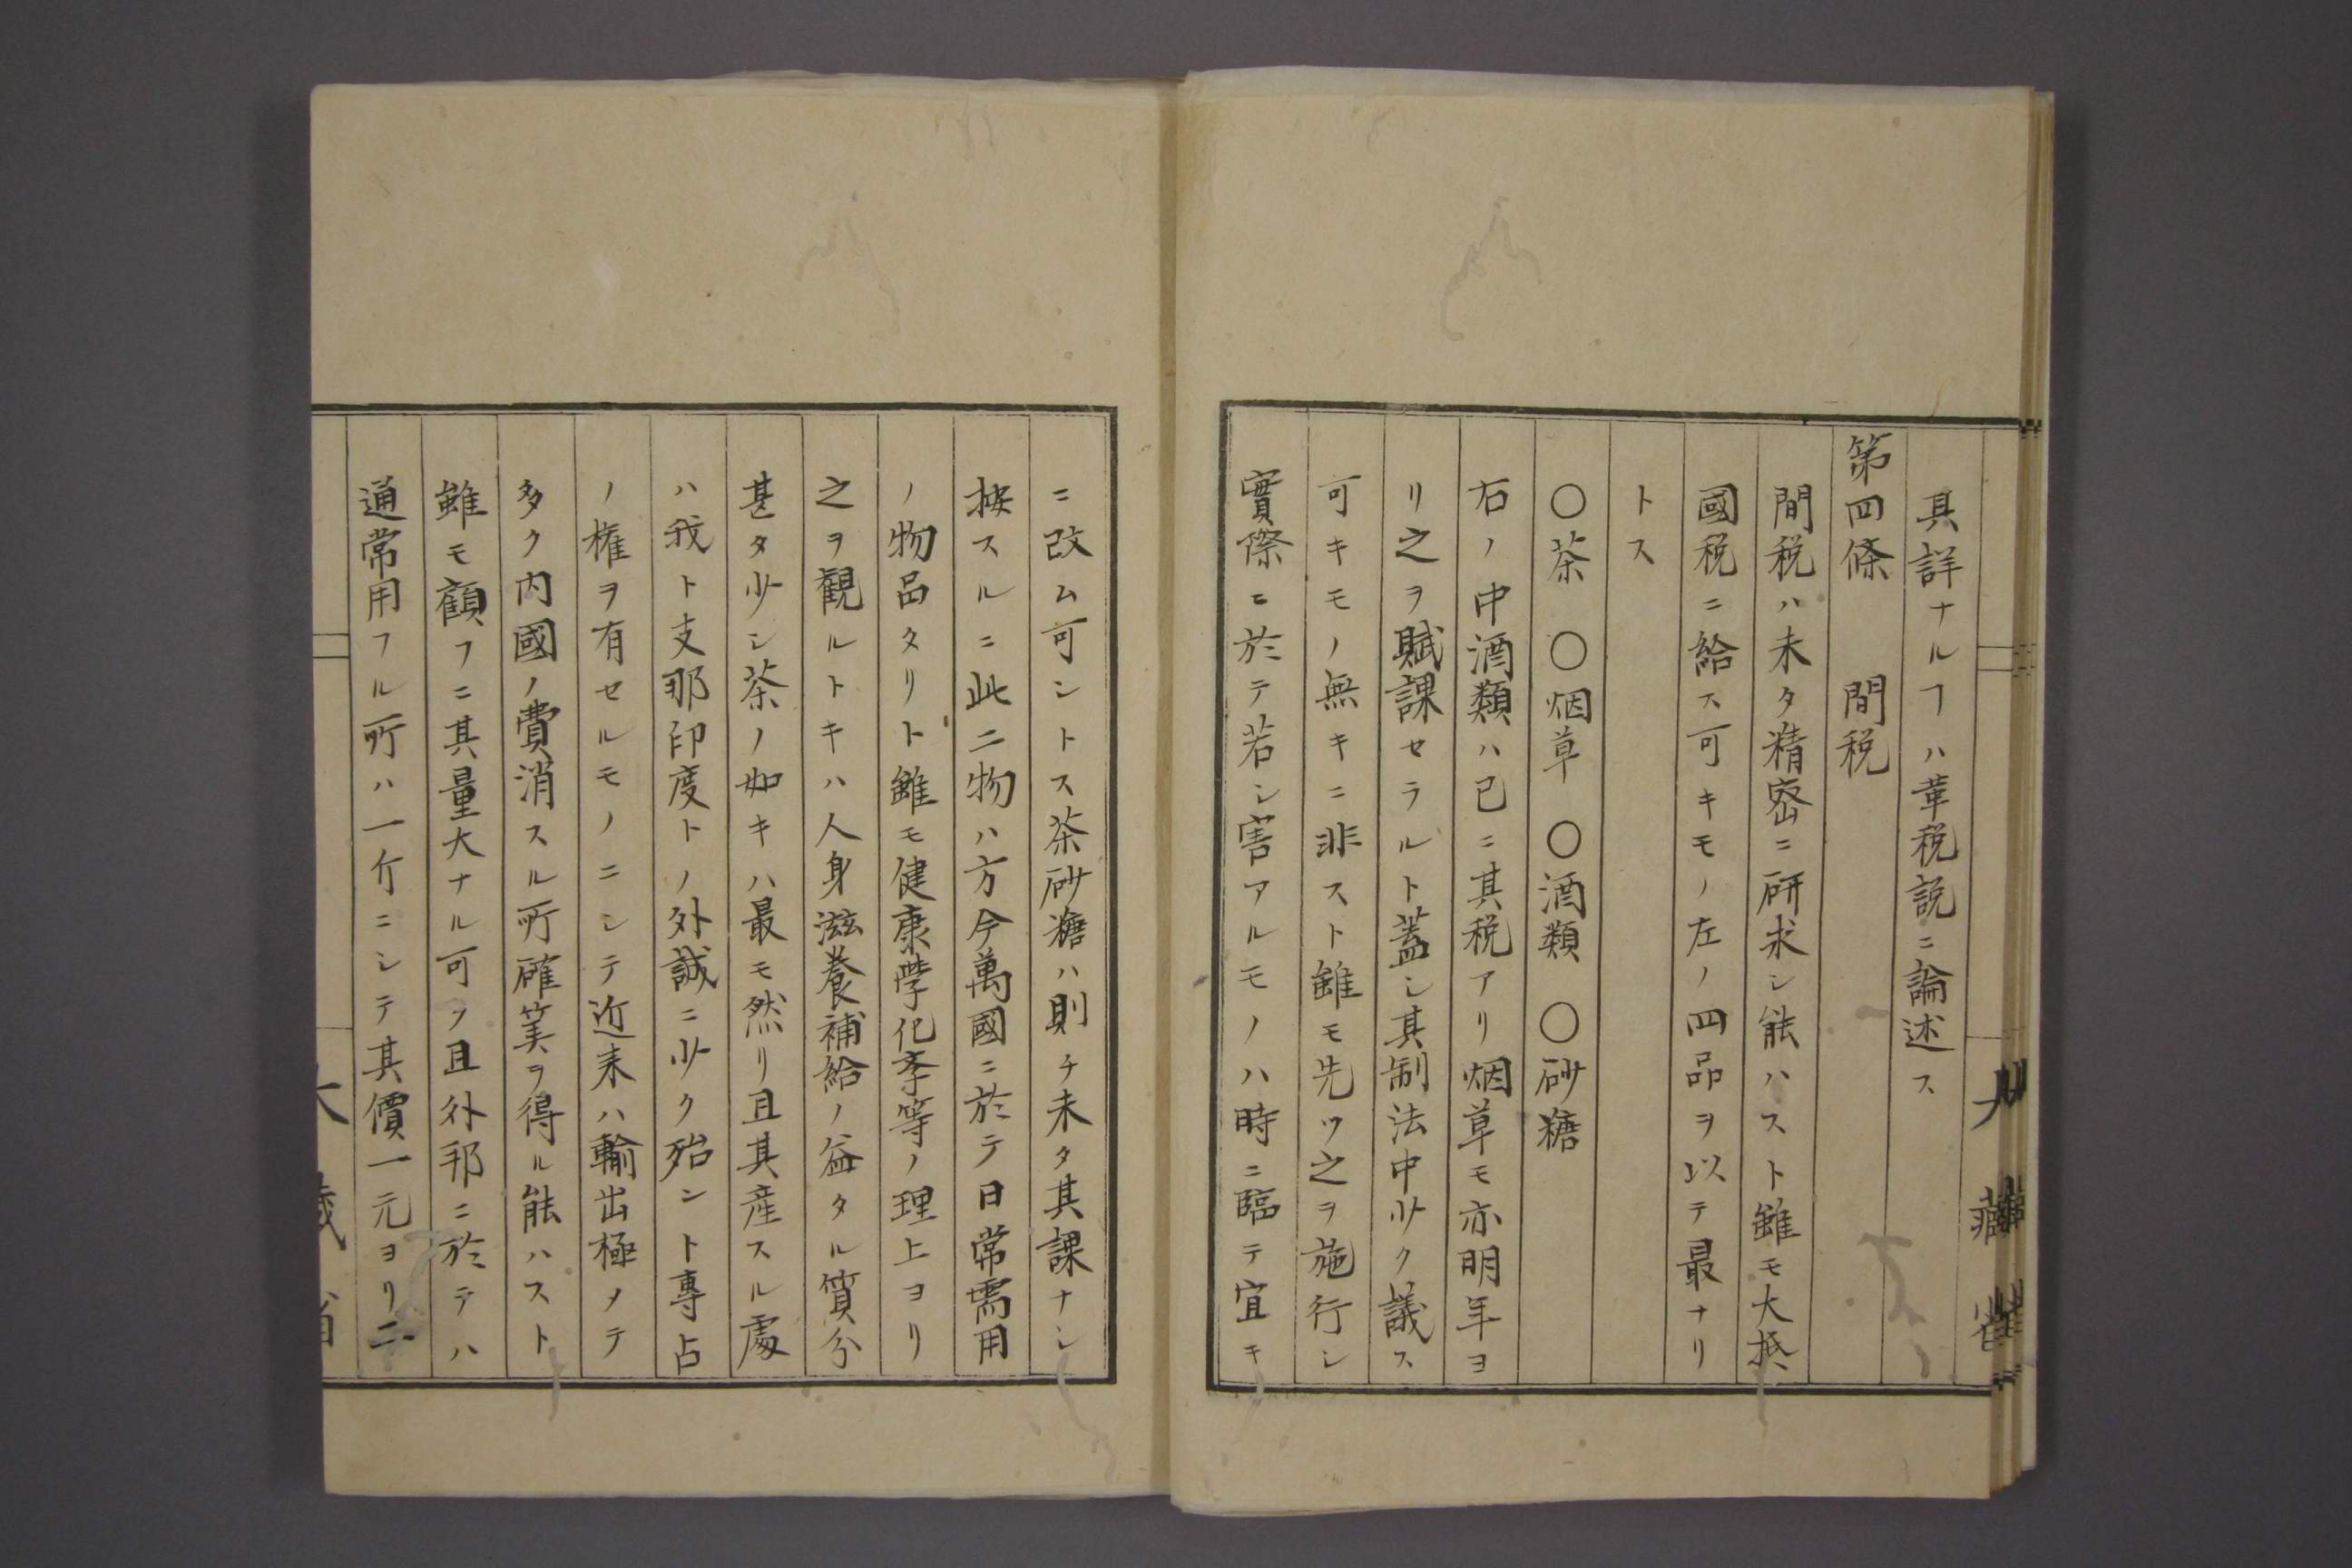 其詳ナルヿハ車税説ニ論述ス
第四條　間税
間税ハ未タ精密ニ研求シ能ハスト雖モ大抵
國税ニ給ス可キモノ左ノ四品ヲ以テ最ナリ
トス
○茶　○烟草　○酒類　○砂糖
右ノ中酒類ハ已ニ其税アリ烟草モ亦明年ヨ
リ之ヲ賦課セラルト蓋シ其制法中少ク議ス
可キモノ無キニ非スト雖モ先ツ之ヲ施行シ
實際ニ於テ若シ害アルモノハ時ニ臨テ宜キ
ニ改ム可シトス茶砂糖ハ則チ未タ其課ナシ
按スルニ此二物ハ方今萬國ニ於テ日常需用
ノ物品タリト雖モ健康學化学等ノ理上ヨリ
之ヲ観ルトキハ人身滋養補給ノ益タル質分
甚タ少シ茶ノ如キハ最モ然リ且其産スル處
ハ我ト支那印度トノ外誠ニ少ク殆ント專占
ノ権ヲ有セルモノニシテ近来ハ輸出極メテ
多ク内國ノ費消スル所確筭ヲ得ル能ハスト
雖モ顧フニ其量大ナル可ク且外邦ニ於テハ
通常用フル所ハ一斤ニシテ其價一元ヨリ二
大藏省